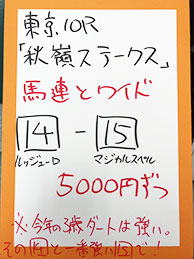 東京10R
「秋嶺ステークス」
馬連とワイド
14-15
ルッジェーロ マジカルスペル
5000円ずつ
※今年の3歳ダートは強い。
その14と一番強い15で!